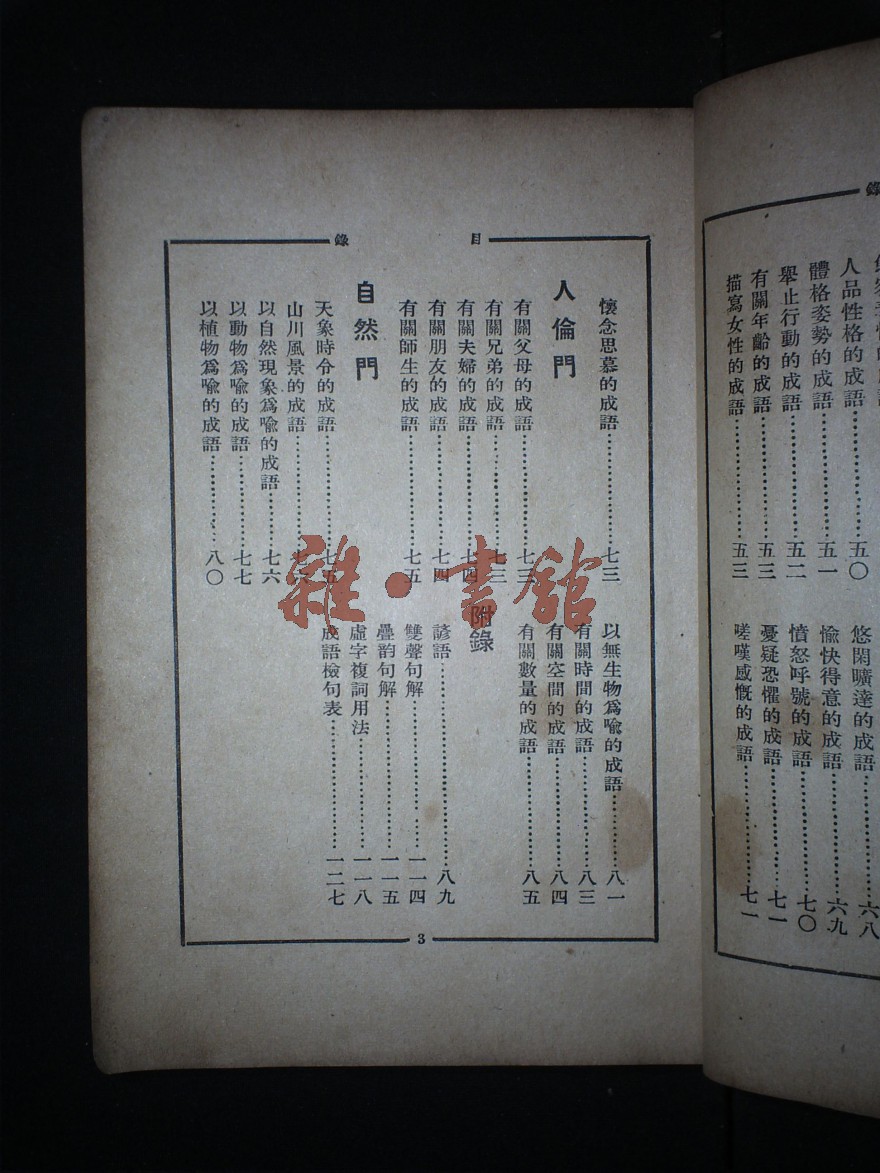 錄
人品性格的成語………五〇
體格姿勢的成語………五一
舉止行動的成語………五二
有關年齡的成語………五三
描寫女性的成語………五三
悠閑曠達的成語………六八
愉快得意的成語………六九
憤怒呼號的成語………七〇
憂疑恐懼的成語………七一
嗟嘆感慨的成語………七一
目錄
懷念思慕的成語………七三
人倫門
有關父母的成語………七三
有關兄弟的成語………七三
有關夫婦的成語………七四
有關朋友的成語………七四
有關師生的成語………七五
自然門
天象時令的成語………七五
山川風景的成語………
以自然現象爲喻的成語………七六
以動物爲喻的成語………七七
以植物爲喻的成語………八〇
以無生物爲喻的成語………八一
有關時間的成語………八三
有關空間的成語………八四
有關數量的成語………八五
附錄
諺語………八九
雙聲句解………一一四
疊韵句解………一一五
虛字複詞用法………一一八
成語檢句表………一二七
3
雜·書館